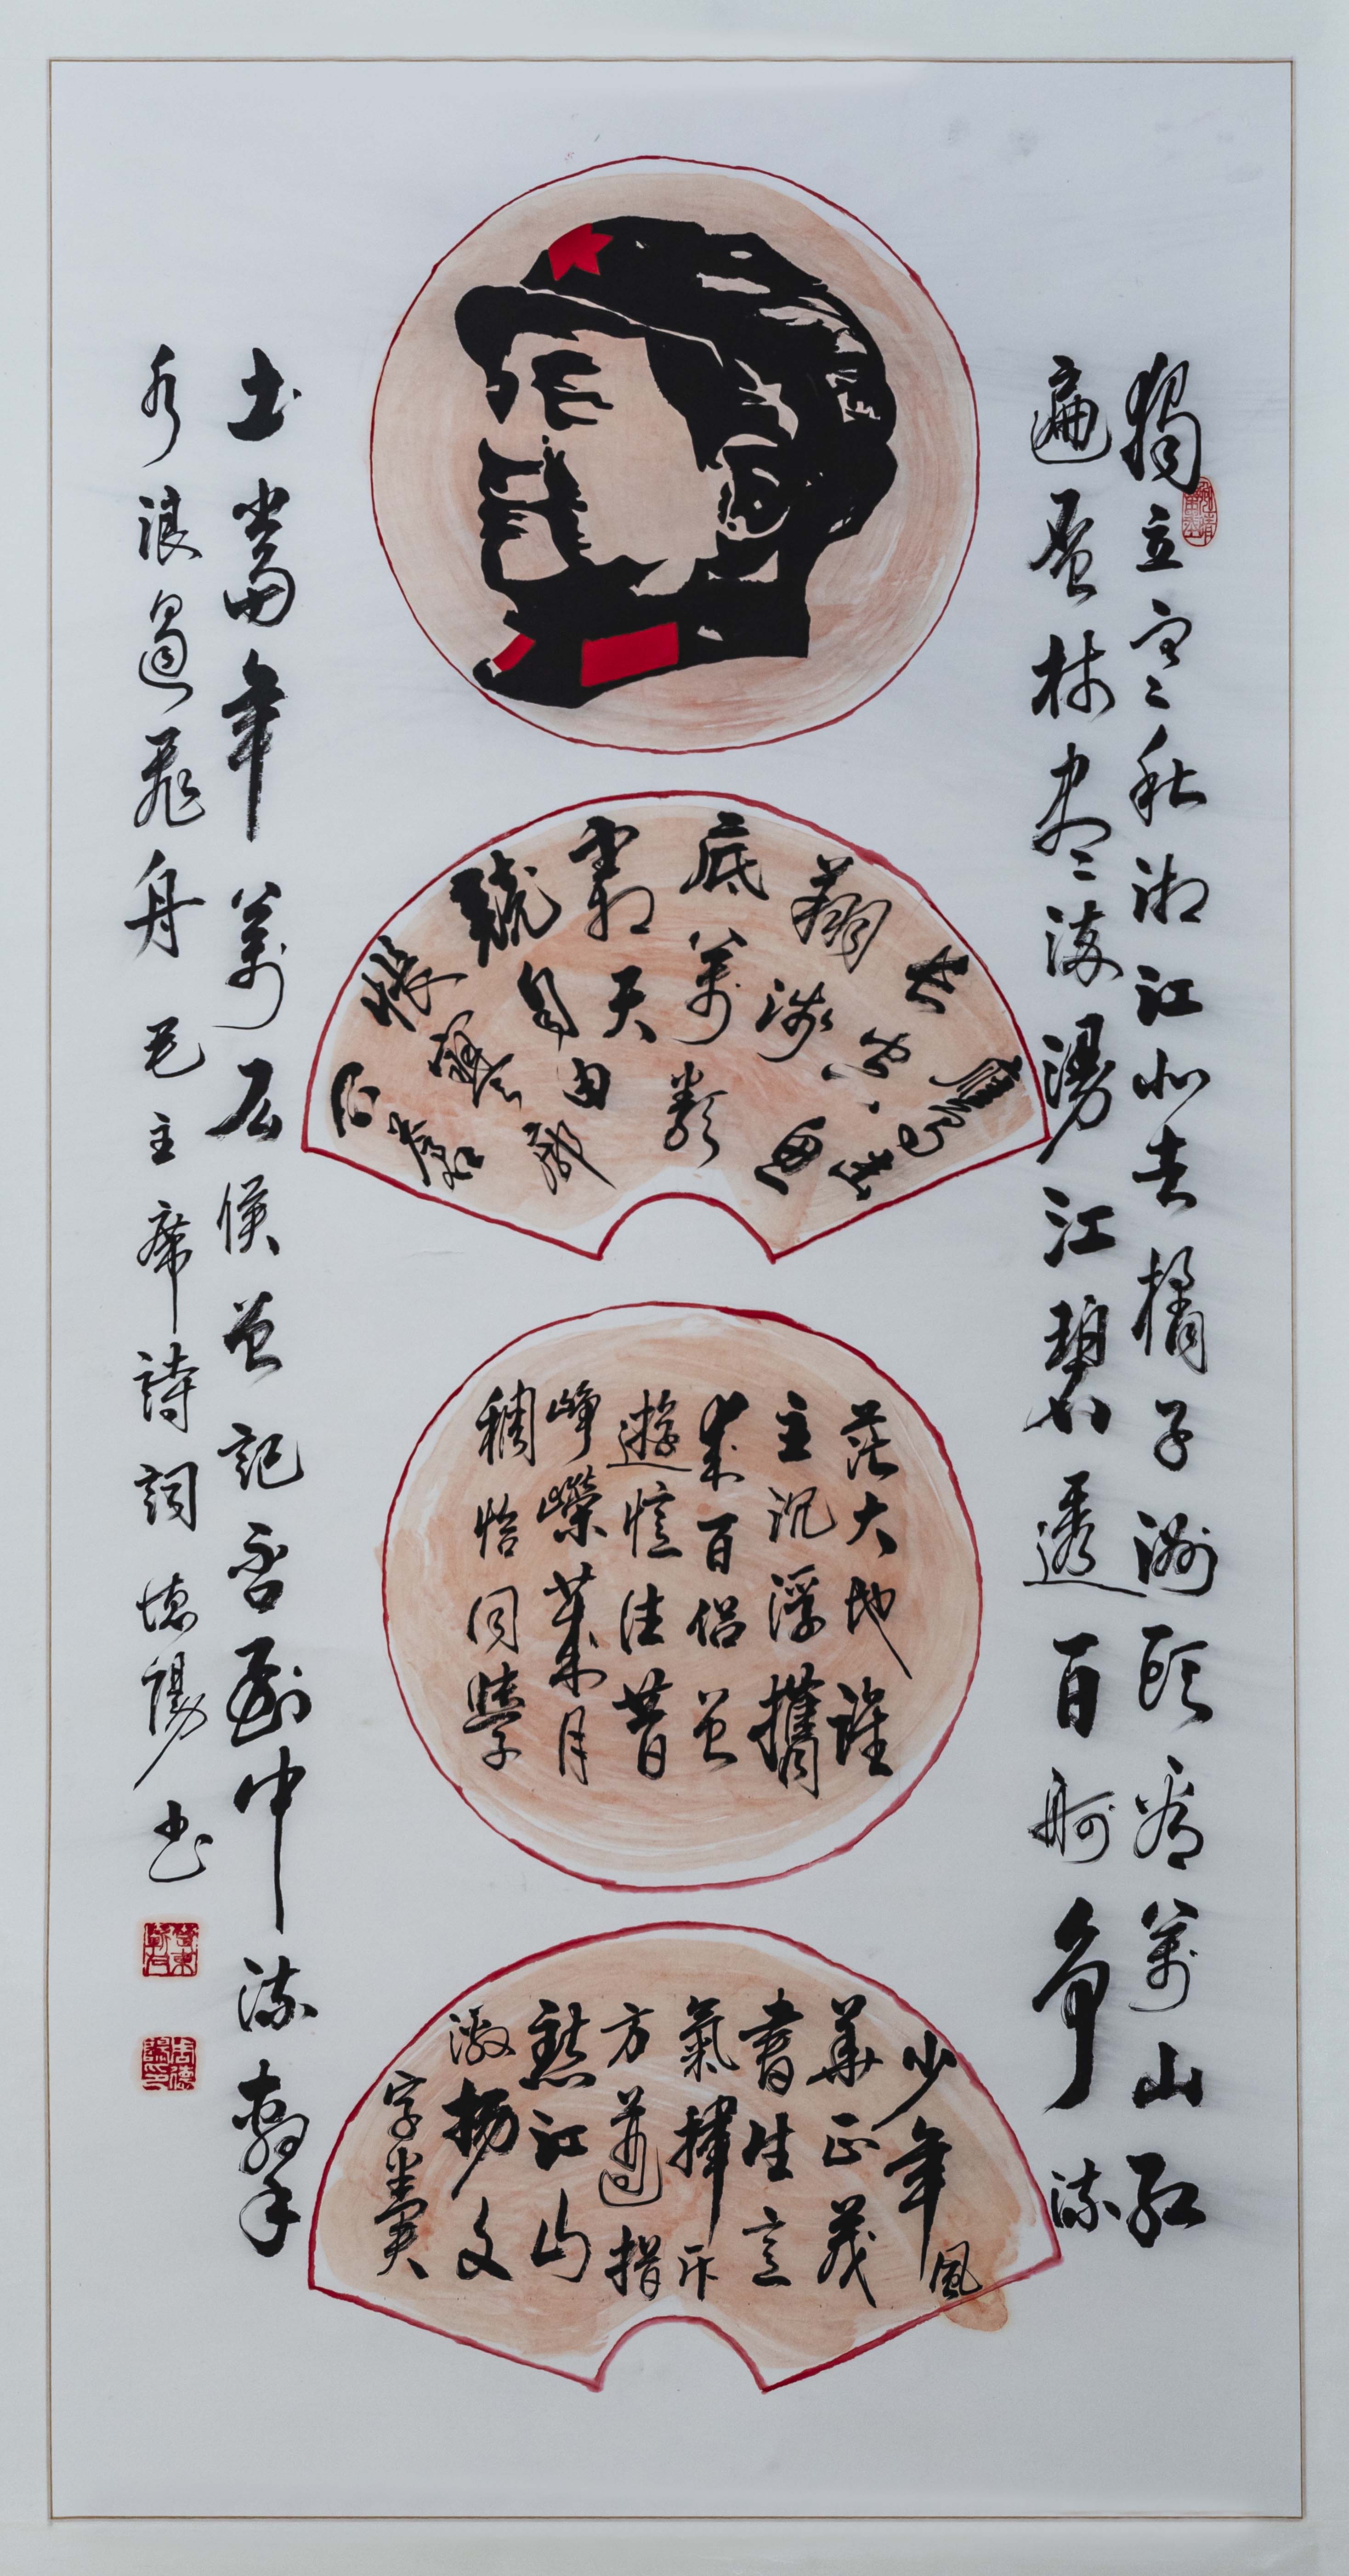 獨立寒秋湘江北去橘子洲頭看萬山紅
遍層林盡染漫江碧透百舸争流
鷹擊
長空魚
翔淺
底萬類
霜天
競自由
悵寥廓
問蒼
茫大地誰
主沉浮攜
來百侣曾
遊憶往昔
崢嶸歲月
稠恰同學
少年風
華正茂
書生意
氣揮斥
方遒指
點江山
激揚文
字糞
土當年萬户侯曾記否到中流擊
水浪遏飛舟 毛主席詩詞 德 书